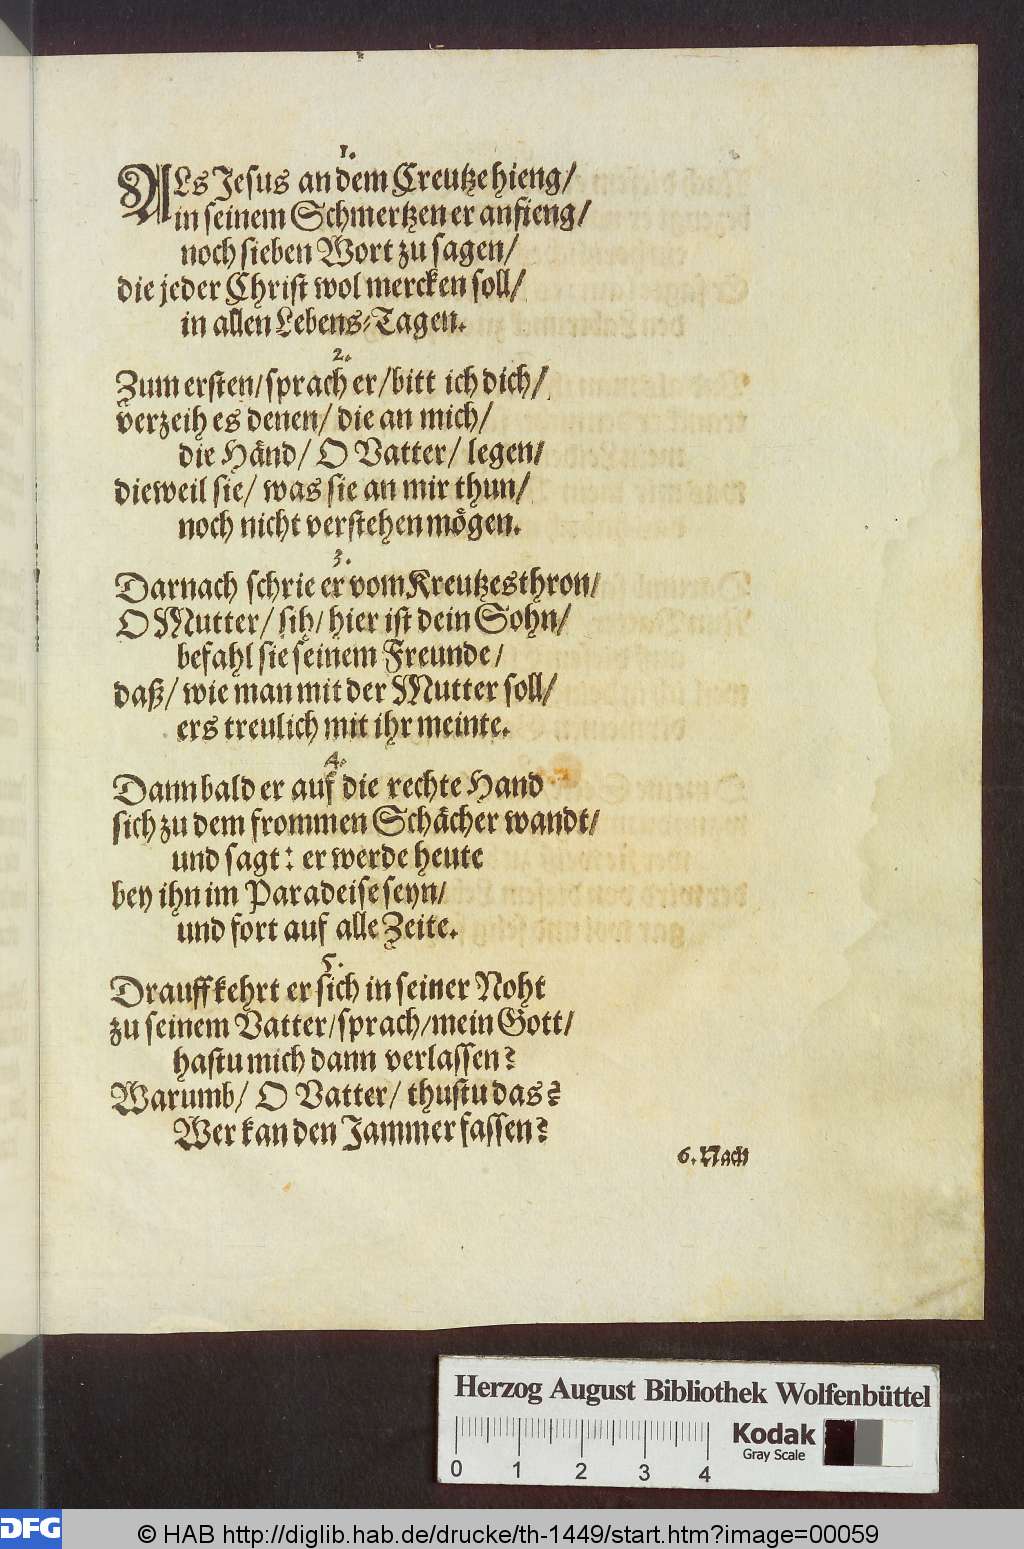 1.
ALs Jesus an dem Creutze hieng/
in seinem Schmertzen er anfieng/
noch sieben Wort zu sagen/
die jeder Christ wol mercken soll/
in allen Lebens-Tagen.
2.
Zum ersten/sprach er/bitt ich dich/
verzeih es denen/ die an mich/
die Händ/ O Vatter/ legen/
dieweil sie/ was sie an mir thun/
noch nicht verstehen mögen.
3.
Darnach schrie er vom Kreutzesthron/
O Mutter/ sih/ hier ist dein Sohn/
befahl sie seinem Freunde/
daß/ wie man mit der Mutter soll/
ers treulich mit ihr meinte.
4.
Dann bald er auf die rechte Hand
sich zu dem frommen Schächer wandt/
und sagt: er werde heute
bey ihn im Paradeise seyn/
und fort auf alle Zeite.
5.
Drauff kehrt er sich in seiner Noht
zu seinem Vatter/sprach/mein Gott/
hastu mich dann verlassen?
Warumb/ O Vatter/ thustu das?
Wer kan den Jammer fassen?
6. Nach
Herzog August Bibliothek Wolfenbüttel
Kodak
Gray Scale
0 1 2 3 4
DFG
© HAB http://diglib.hab.de/drucke/th-1449/start.htm?image=00059